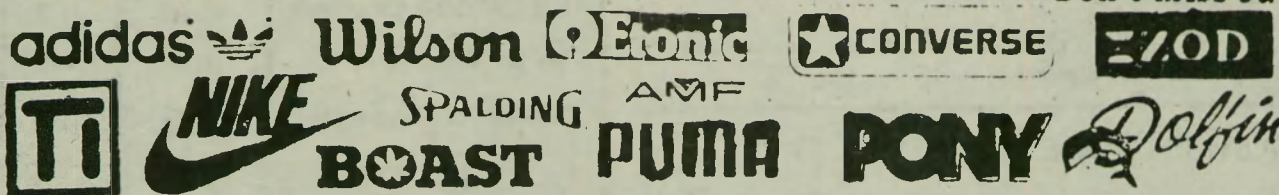 adidas Wilson Etonic CONVERSE IZOD
Ti NIKE SPALDING AMF
BOAST PUMA PONY Dolfin